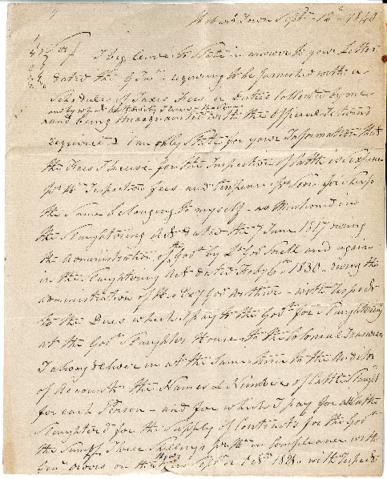 Hobart Town Sept 12th 1840
Sir
I beg leave to State in answer to your Letter
dated the 9 Inst requiring to be furnished with a
Schedule of Taxes Fees or Duties collected by me
and being
required I can only State for your Information that
the Fees I receive for the Inspection of Cattle is
per Head Inspection Fees and for Sheep
the Same belonging to myself as mentioned in
the Slaughtering Act dated the 7 June 1817 during
the Administration of Govt by Lt Govr Sorell and again
in the Slaughtering Act dated 1830 during the
administration of Govr Arthur with respect
to the Dues which I pay to the Govt for Slaughtering
at the Govt Slaughter House to the Colonial Treasurer
I always deliver in at the same time to the Auditor
of Accounts the Names & Number of Cattle Slaught
for each Person and for which I pay for all Cattle
Slaughtered for the Supply of Contracts for the Govt
the Sum of Three Shillings per Head in compliance with
Govt orders on the with respect